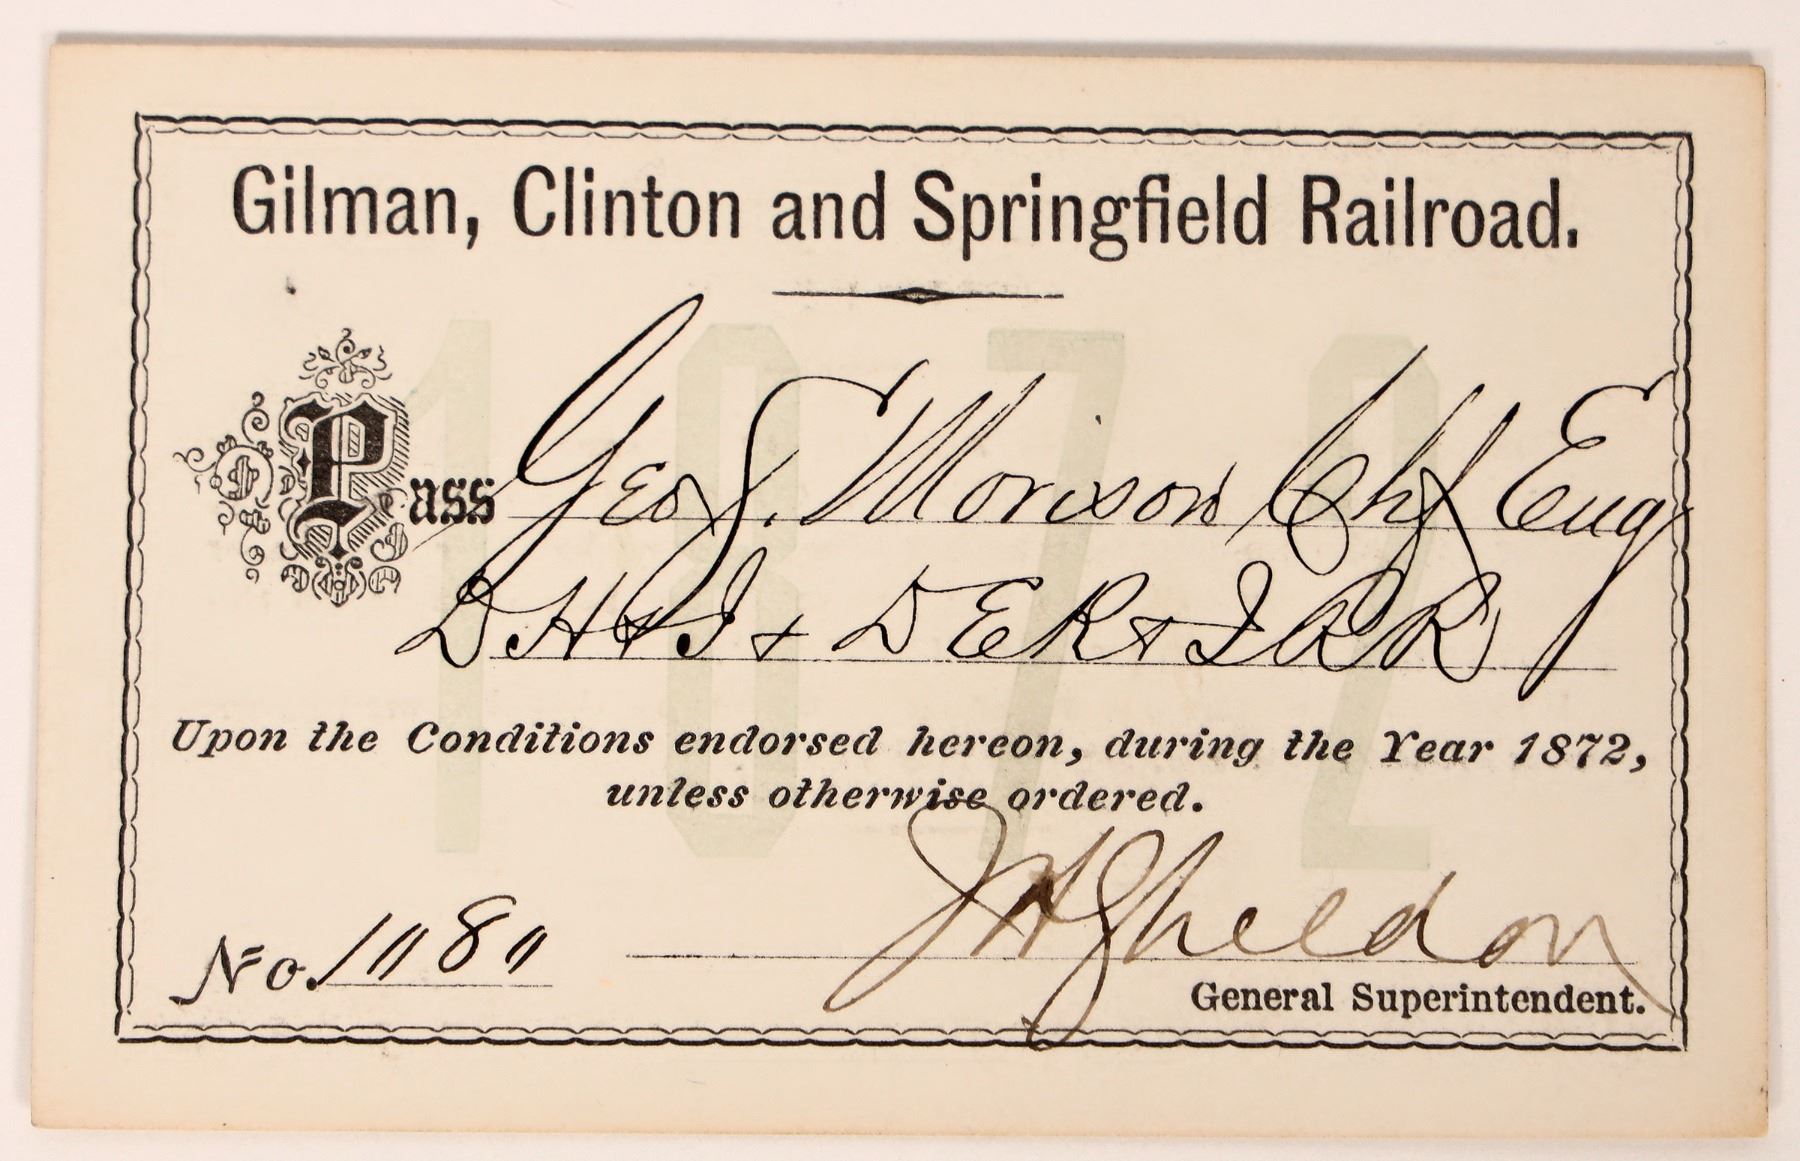 Gilman, Clinton and Springfield Railroad.
1872
Pass Geo S. Morison Chf Eng
DH&I & DER & I RR
Upon the Conditions endorsed hereon, during the Year 1872,
unless otherwise ordered.
No. 1080
JH Sheldon
General Superintendent.